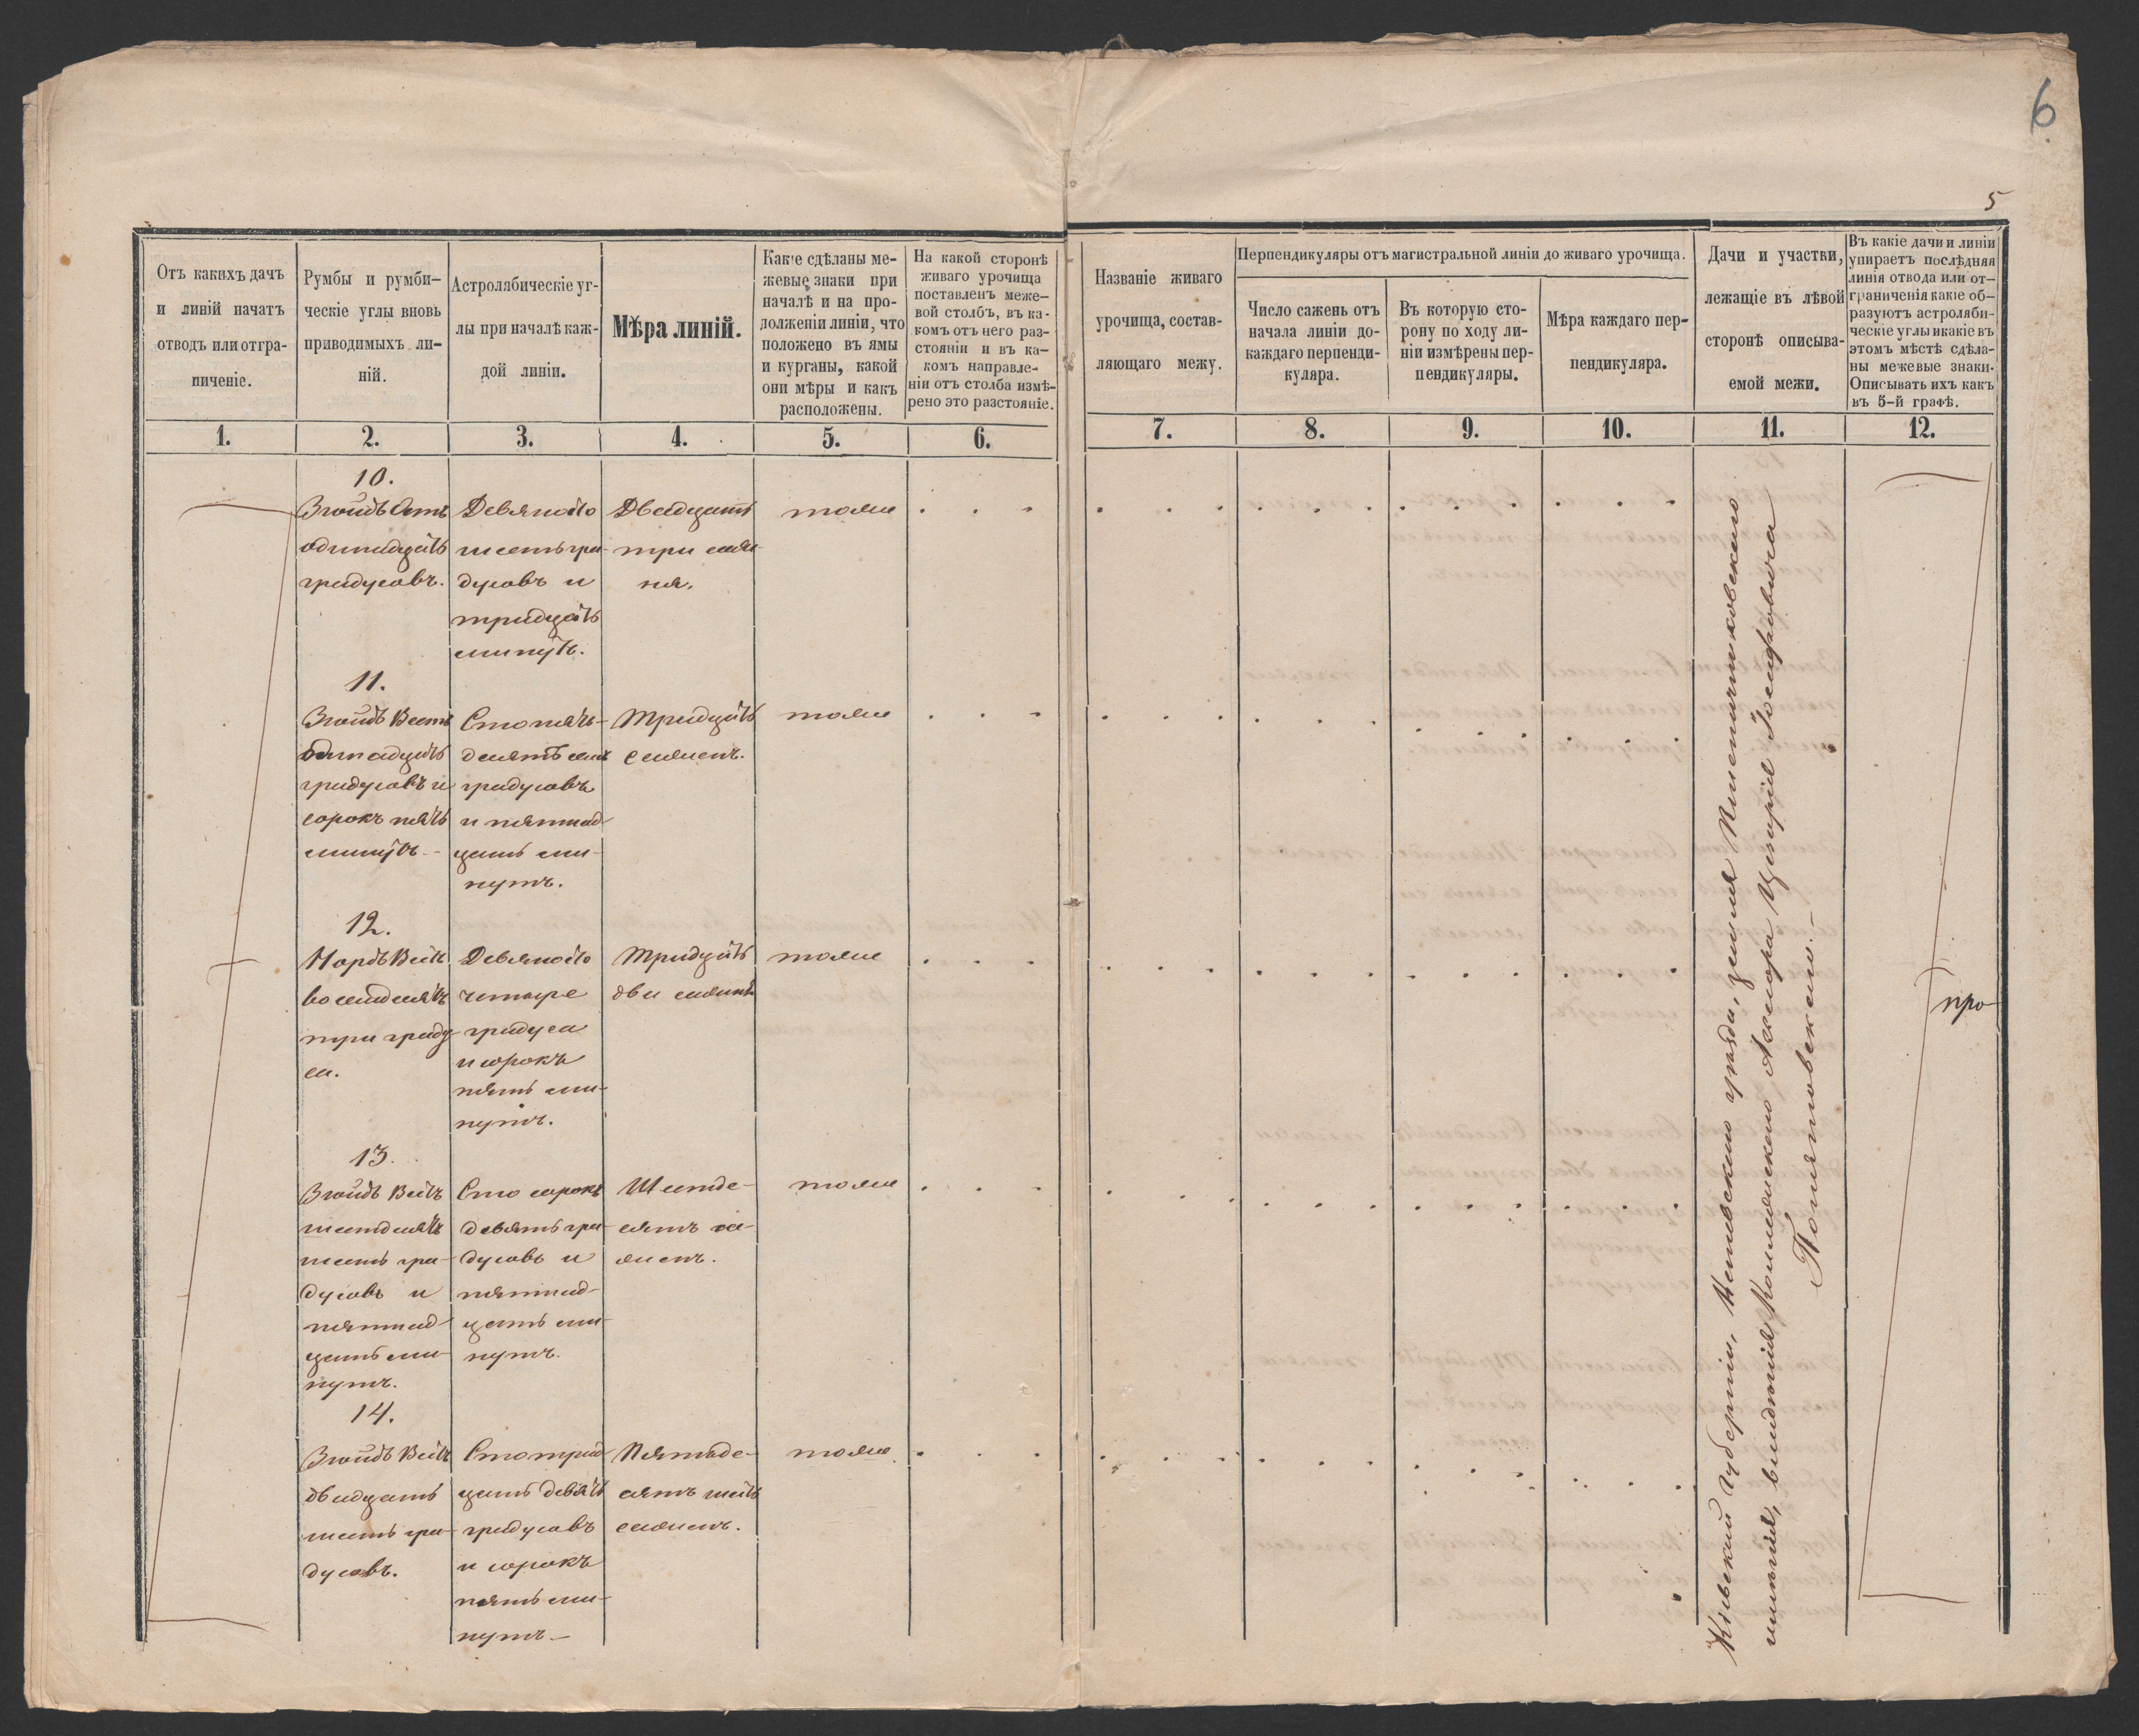 6
5
Отъ какихъ дачъ
и линій начатъ
отводъ или отгра-
ниченіе.
Румбы и румби-
ческіе углы вновь
приводимыхъ ли-
ній.
Астролябическіе уг-
лы при началѣ каж-
дой линіи.
Мѣра линій.
Какіе сдѣланы ме-
жевые знаки при
началѣ и на про-
долженіи линіи, что
положено въ ямы
и курганы, какой
они мѣры и какъ
расположены.
На какой сторонѣ
живаго урочища
поставленъ меже-
вой столбъ, въ ка-
комъ отъ него раз-
стояніи и въ ка-
комъ направле-
ніи отъ столба измѣ-
рено это разстояніе.
Названіе живаго
урочища, состав-
ляющаго межу.
Перпендикуляры отъ магистральной линіи до живаго урочища.
Число сажень отъ
начала линіи до-
каждаго перпенди-
куляра.
Въ которую сто-
рону по ходу ли-
ніи измѣрены пер-
пендикуляры.
Мѣра каждаго пер-
пендикуляра.
Дачи и участки,
лежащіе въ лѣвой
сторонѣ описыва-
емой межи.
Въ какіе дачи и линіи
упираетъ послѣдняя
линія отвода или от-
граниченія какіе об-
разуютъ астроляби-
ческіе углы и какіе въ
этомъ мѣстѣ сдѣла-
ны межевые знаки.
Описывать ихъ какъ
въ 5-й графѣ.
1. 2. 3. 4. 5. 6. 7. 8. 9. 10. 11. 12.
10.
Зюйдъ Остъ
одинадцать
градусовъ.
Девяносто
шесть гра-
дусовъ и
тридцать
минутъ.
Двадцать
три саже-
ня.
тоже
11.
Зюйдъ Вестъ
одинадцать
градусовъ и
сорокъ пять
минутъ.
Сто пять-
десятъ семь
градусовъ
и пятнад-
цать ми-
нутъ.
Тридцать
сажень.
тоже
12.
Нордъ Вестъ
восемдесятъ
три граду-
са.
Девяносто
четыре
градуса
и сорокъ
пять ми-
нутъ.
Тридцать
две сажени
тоже
13.
Зюйдъ Вестъ
шестдесятъ
шесть гра-
дусовъ и
пятнад-
цать ми-
нутъ.
Сто сорокъ
девять гра-
дусовъ и
пятнад-
цать ми-
нутъ.
Шестде-
сятъ са-
жень.
тоже
14.
Зюйдъ Вестъ
двадцать
шесть гра-
дусовъ.
Сто трид-
цать девять
градусовъ
и сорокъ
пять ми-
нутъ.
Пятьде-
сятъ шесть
сажень.
тоже
Кіевской Губерніи, уѣзда, земля
имѣнія, владѣнія Коллежскаго Асессора Іосифовича
Понятовскаго.
про-